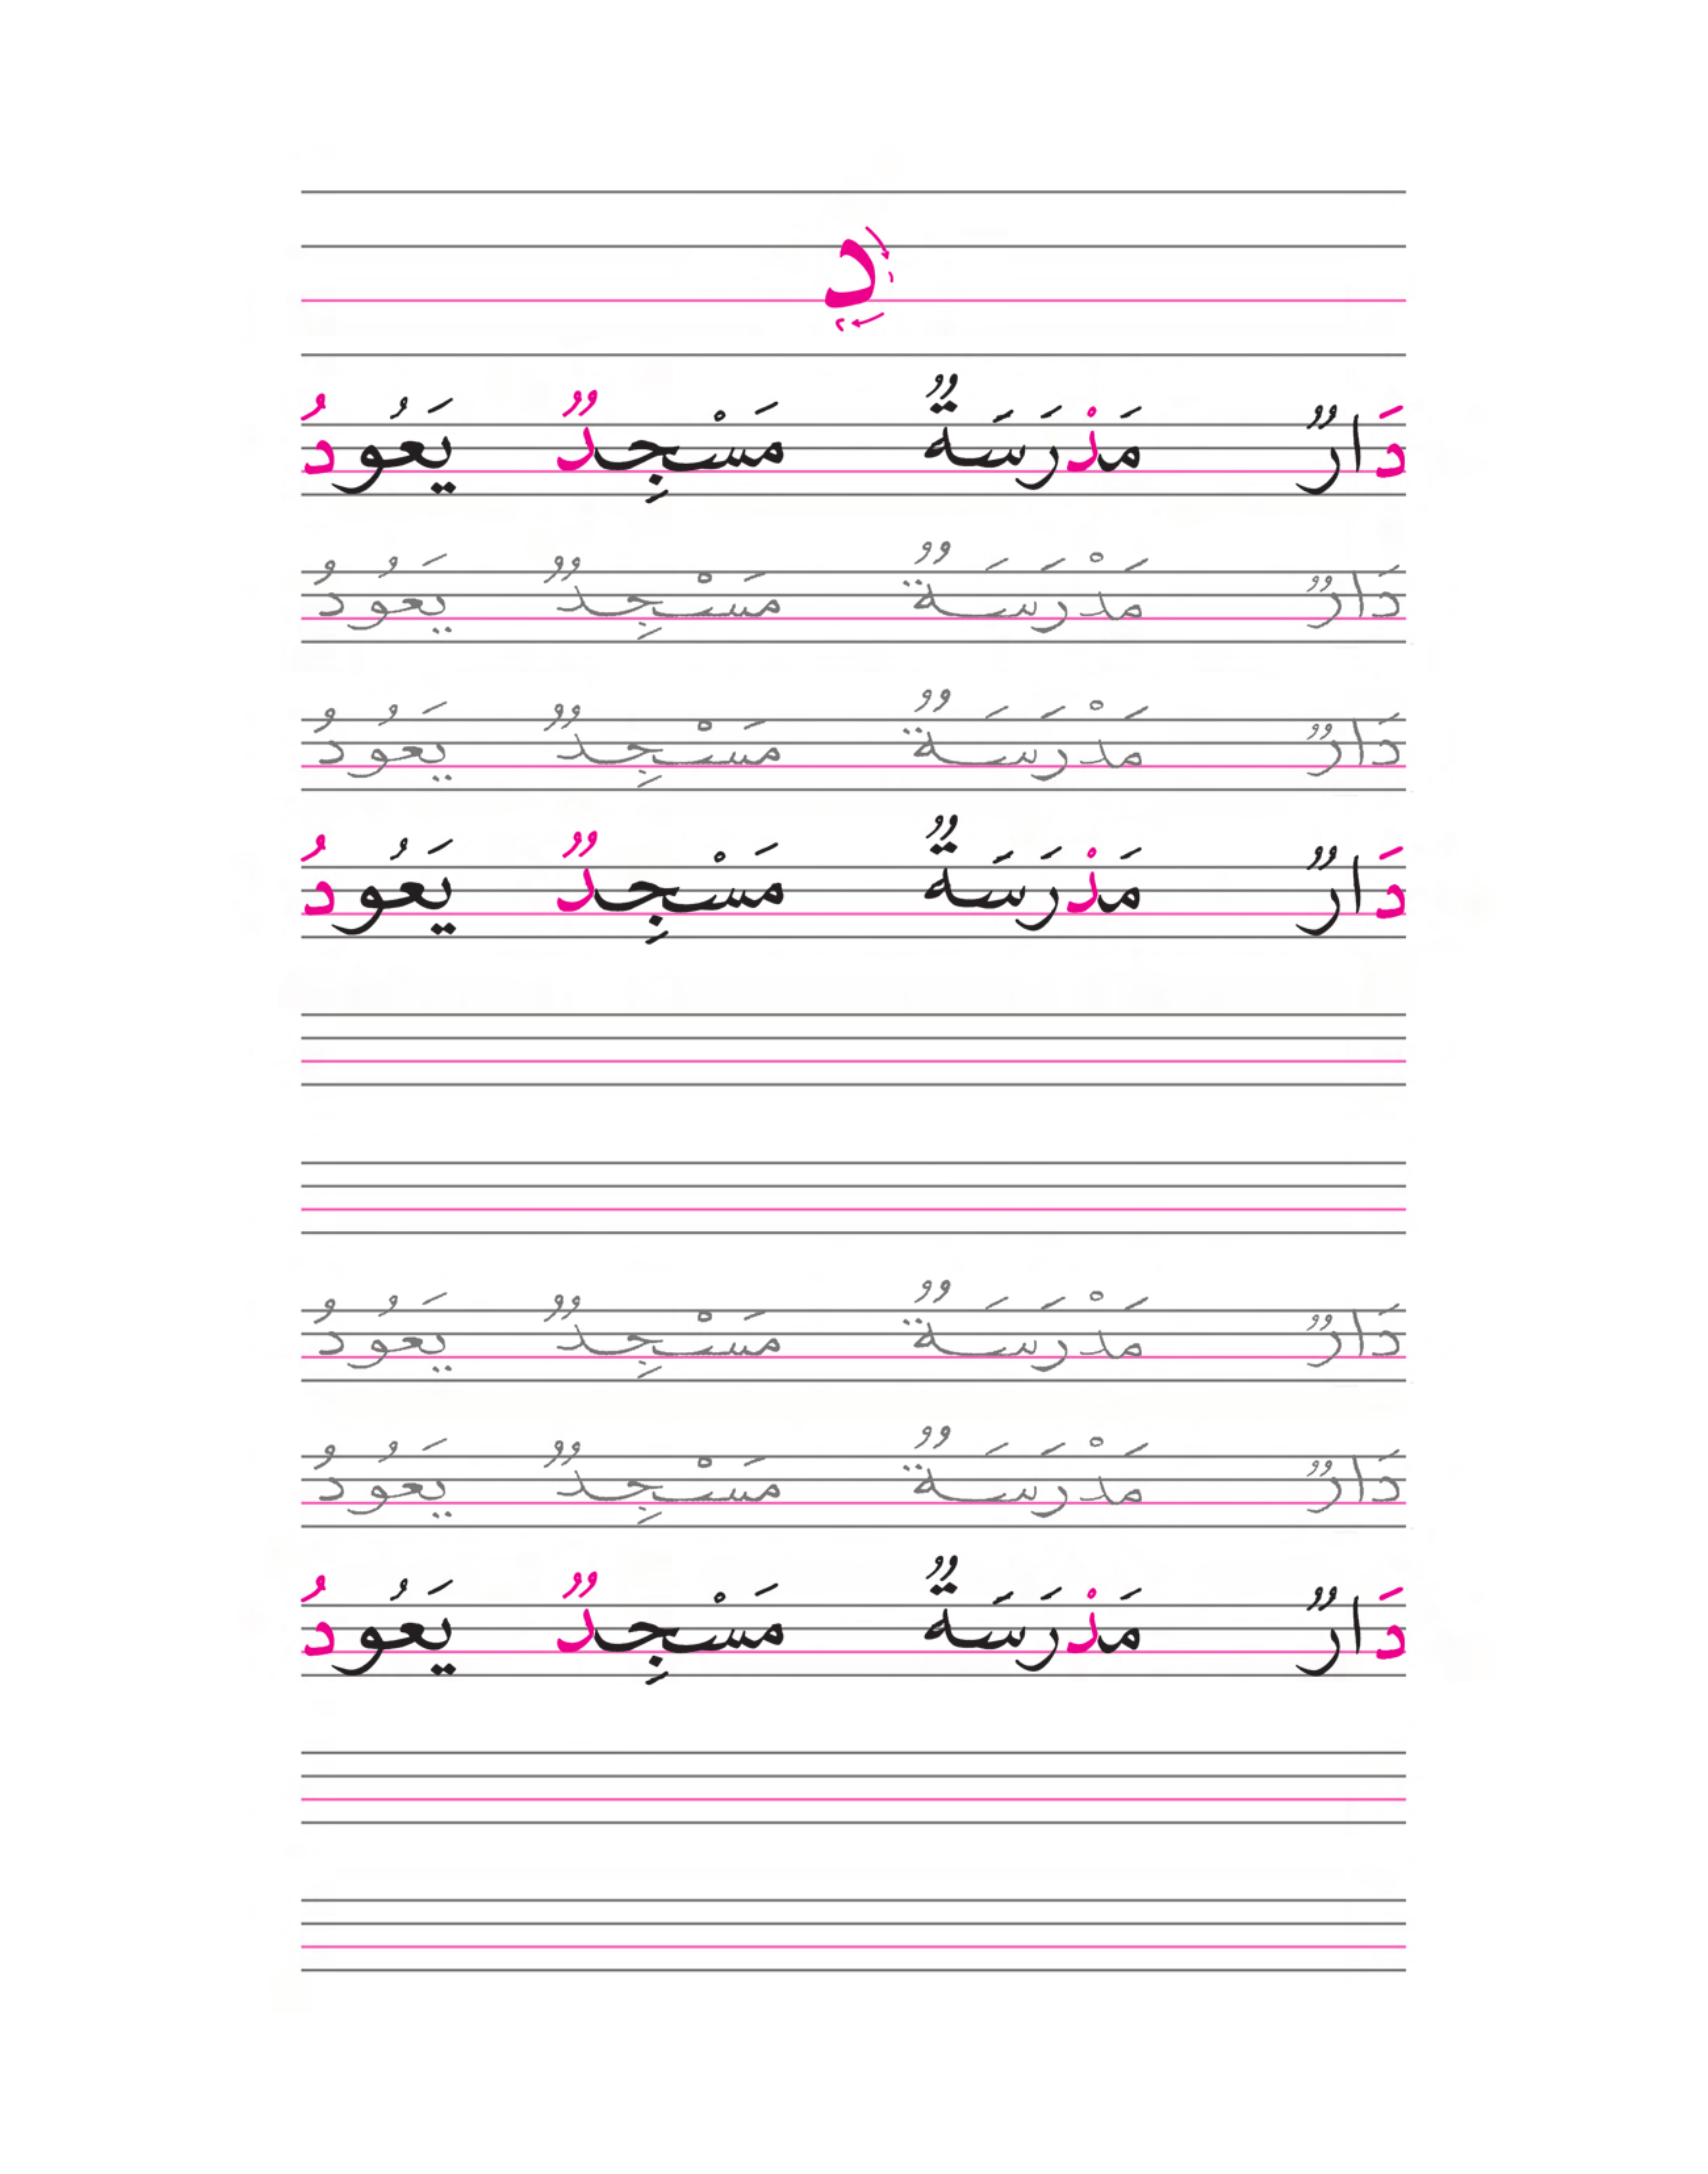 د
دَارٌ مَدْرَسَةٌ مَسْجِدٌ يَعُودُ
دَارٌ مَدْرَسَةٌ مَسْجِدٌ يَعُودُ
دَارٌ مَدْرَسَةٌ مَسْجِدٌ يَعُودُ
دَارٌ مَدْرَسَةٌ مَسْجِدٌ يَعُودُ
دَارٌ مَدْرَسَةٌ مَسْجِدٌ يَعُودُ
دَارٌ مَدْرَسَةٌ مَسْجِدٌ يَعُودُ
دَارٌ مَدْرَسَةٌ مَسْجِدٌ يَعُودُ